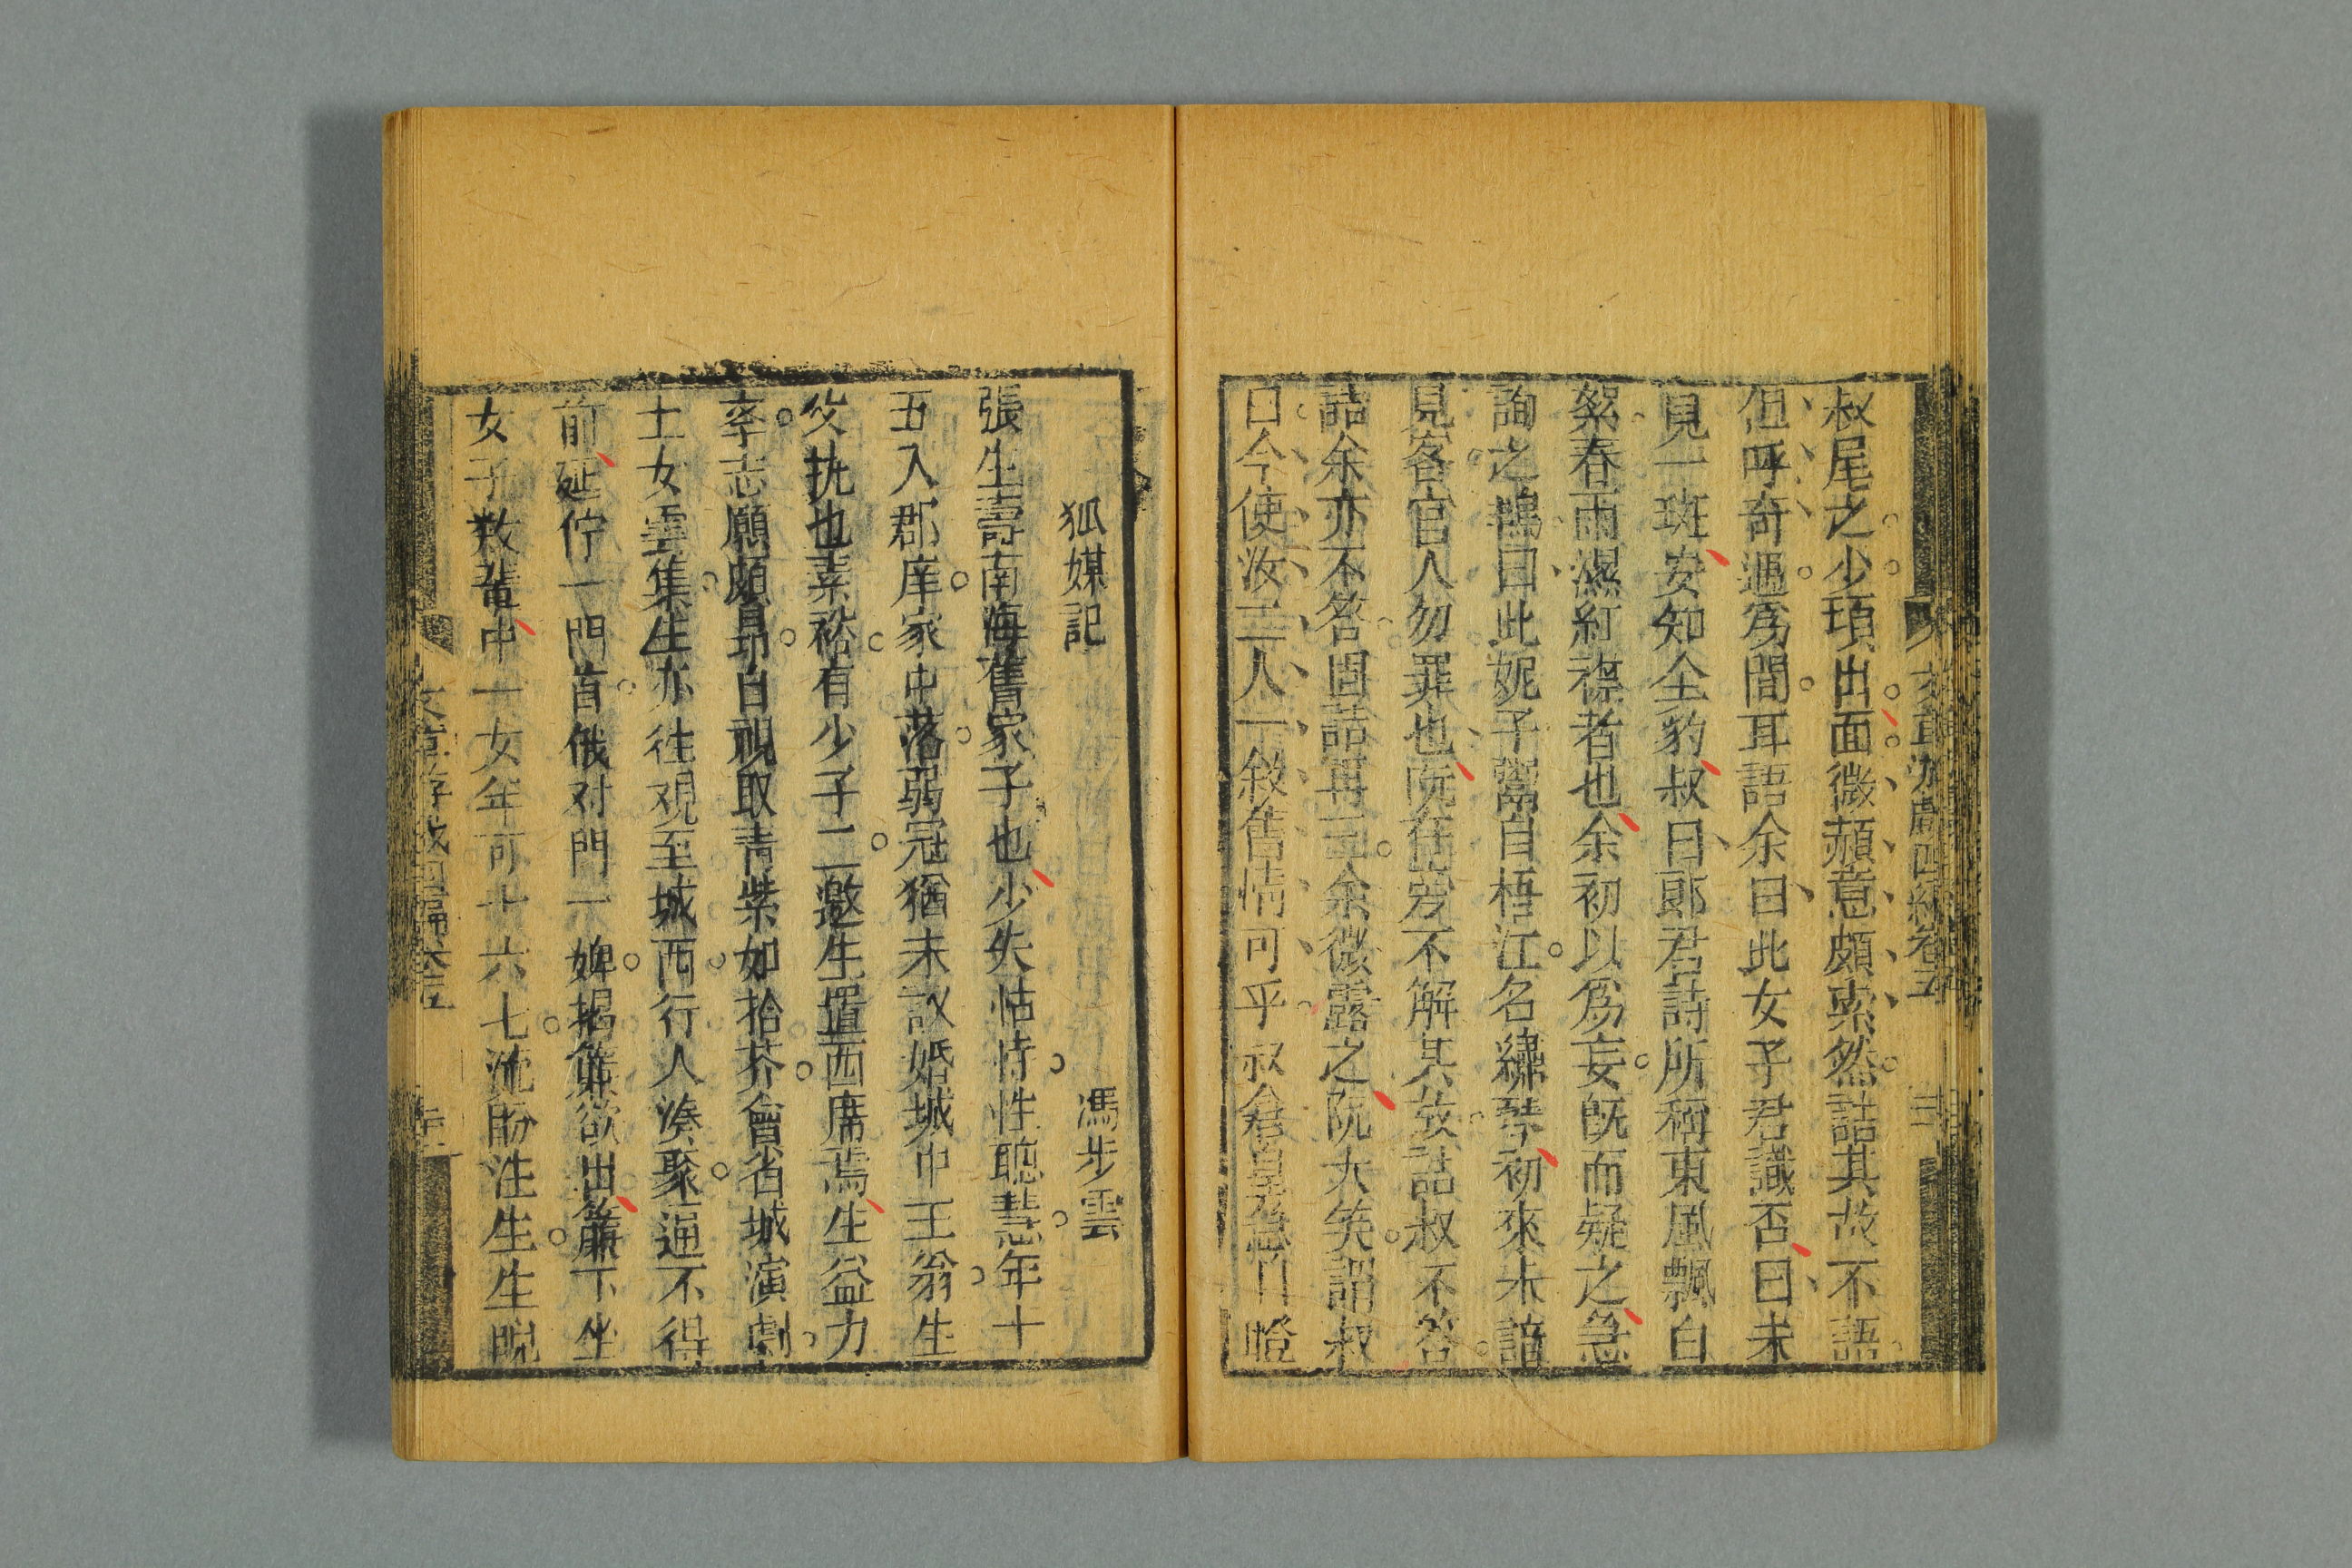 叔尾之少頃出面微頳意頗索然詰其故不語
但呼奇遇爲間耳語余曰此女子君識否曰未
見一斑安知全豹叔曰郎君詩所稱東風飄白
絮春雨濕紅裙者也余初以爲妄旣而疑之急
詢之鴇曰此妮子鬻自梧江名繡琴初來未諳
見客官人勿罪也阮在旁不解其故詰叔不答
詰余亦不答固詰再三余微露之阮大笑謂叔
曰今使汝二人一敘舊情可乎叔倉皇急
狐媒記 馮步雲
張生壽南海舊家子也少失怙恃性聰慧年十
五入郡庠家中落弱冠猶未議婚城中王翁生
父執也素裕有少子二邀生置西席焉生益力
率志願頗昻自視取青紫如拾芥會省城演劇
士女雲集生亦往觀至城西行人湊聚逼不得
前延佇一門首俄对門一婢揭簾欲出簾下坐
女子数輩中一女年可十六七流盼注生生睨